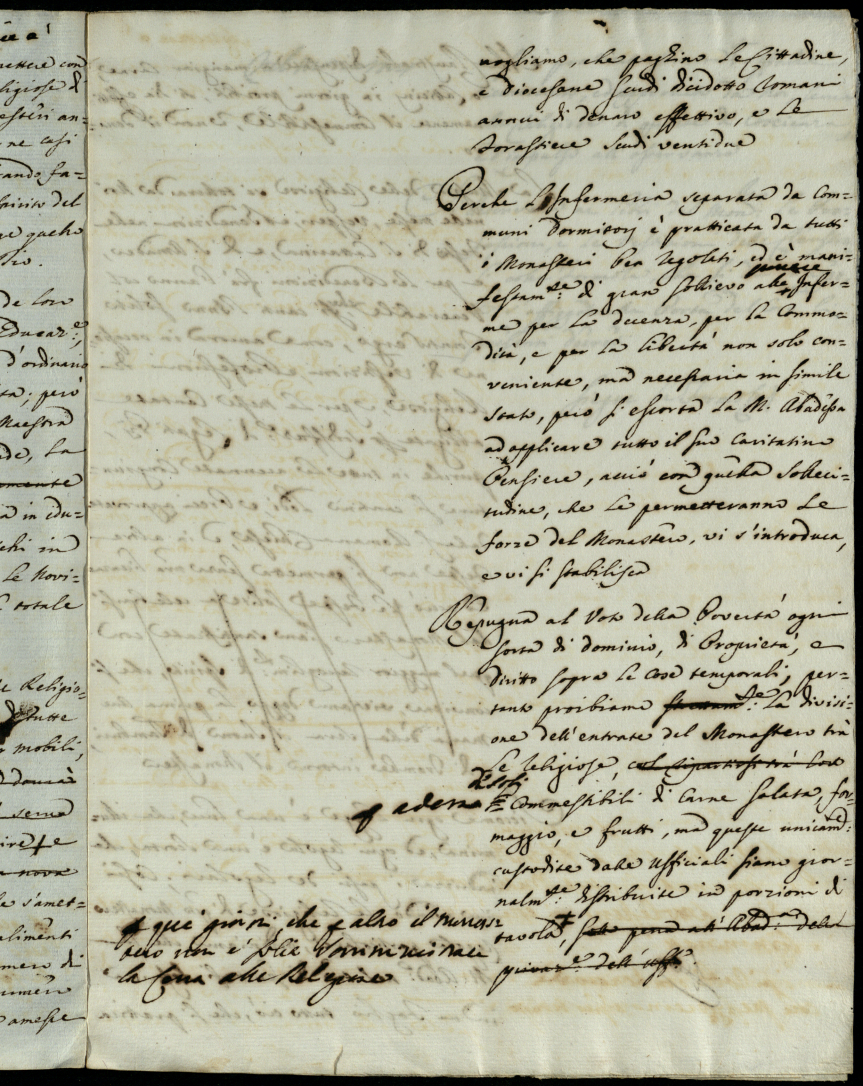 vogliamo, che paghino le Cittadine,
e Diocesane scudi dicidotto Romani
annui di denaro effettivo, e le
Forastiere scudi ventidue
Perche l'Infermeria separata da Com=
muni Dormitorj è pratticata da tutti
i Monasteri ben regolati, ed è mani=
festam.te di gran sollievo alle Infer=
me per la decenza, per la Commo=
dità, e per la libertà non solo con=
veniente, ma necessaria in simile
stato, però si essorta la M. Abadessa
ad applicare tutto il suo caritativo
Pensiere, acciò con quella solleci=
tudine, che le permetteranno le
forze del Monastero, vi s'introduca,
e vi si stabilisca
Repugna al Voto della Povertà ogni
sorta di dominio, di Proprietà, e
diritto sopra le cose temporali; per=
tanto proibiamo la divisi=
one dell'entrate del Monastero trà
le religiose, col ripartirsi trà loro
de soli
Commestibili di Carne salata, for=
maggio, e frutti, ma queste unicam.:
custodite dalle Ufficiali siano gior=
nalm.te distribuite in porzioni di
tavola, sotto pena all'Abad.a della
privaz.e dell'Uff.o
que giorni, che altro il
non è solita
la Cena alle Religiose
ettere con
ligiose di
esteri an=
ne casi
ando fa=
pirito del
ge quello
de loro
Educaz.e,
d'ordinario
ta; però
Maestra
de, la
omente
a in edu=
chi in
le Novi=
totale
le Religio=
di tutte
mobili,
serva
ire
nova
le s'amet=
alimenti
mero di
numero
amesse